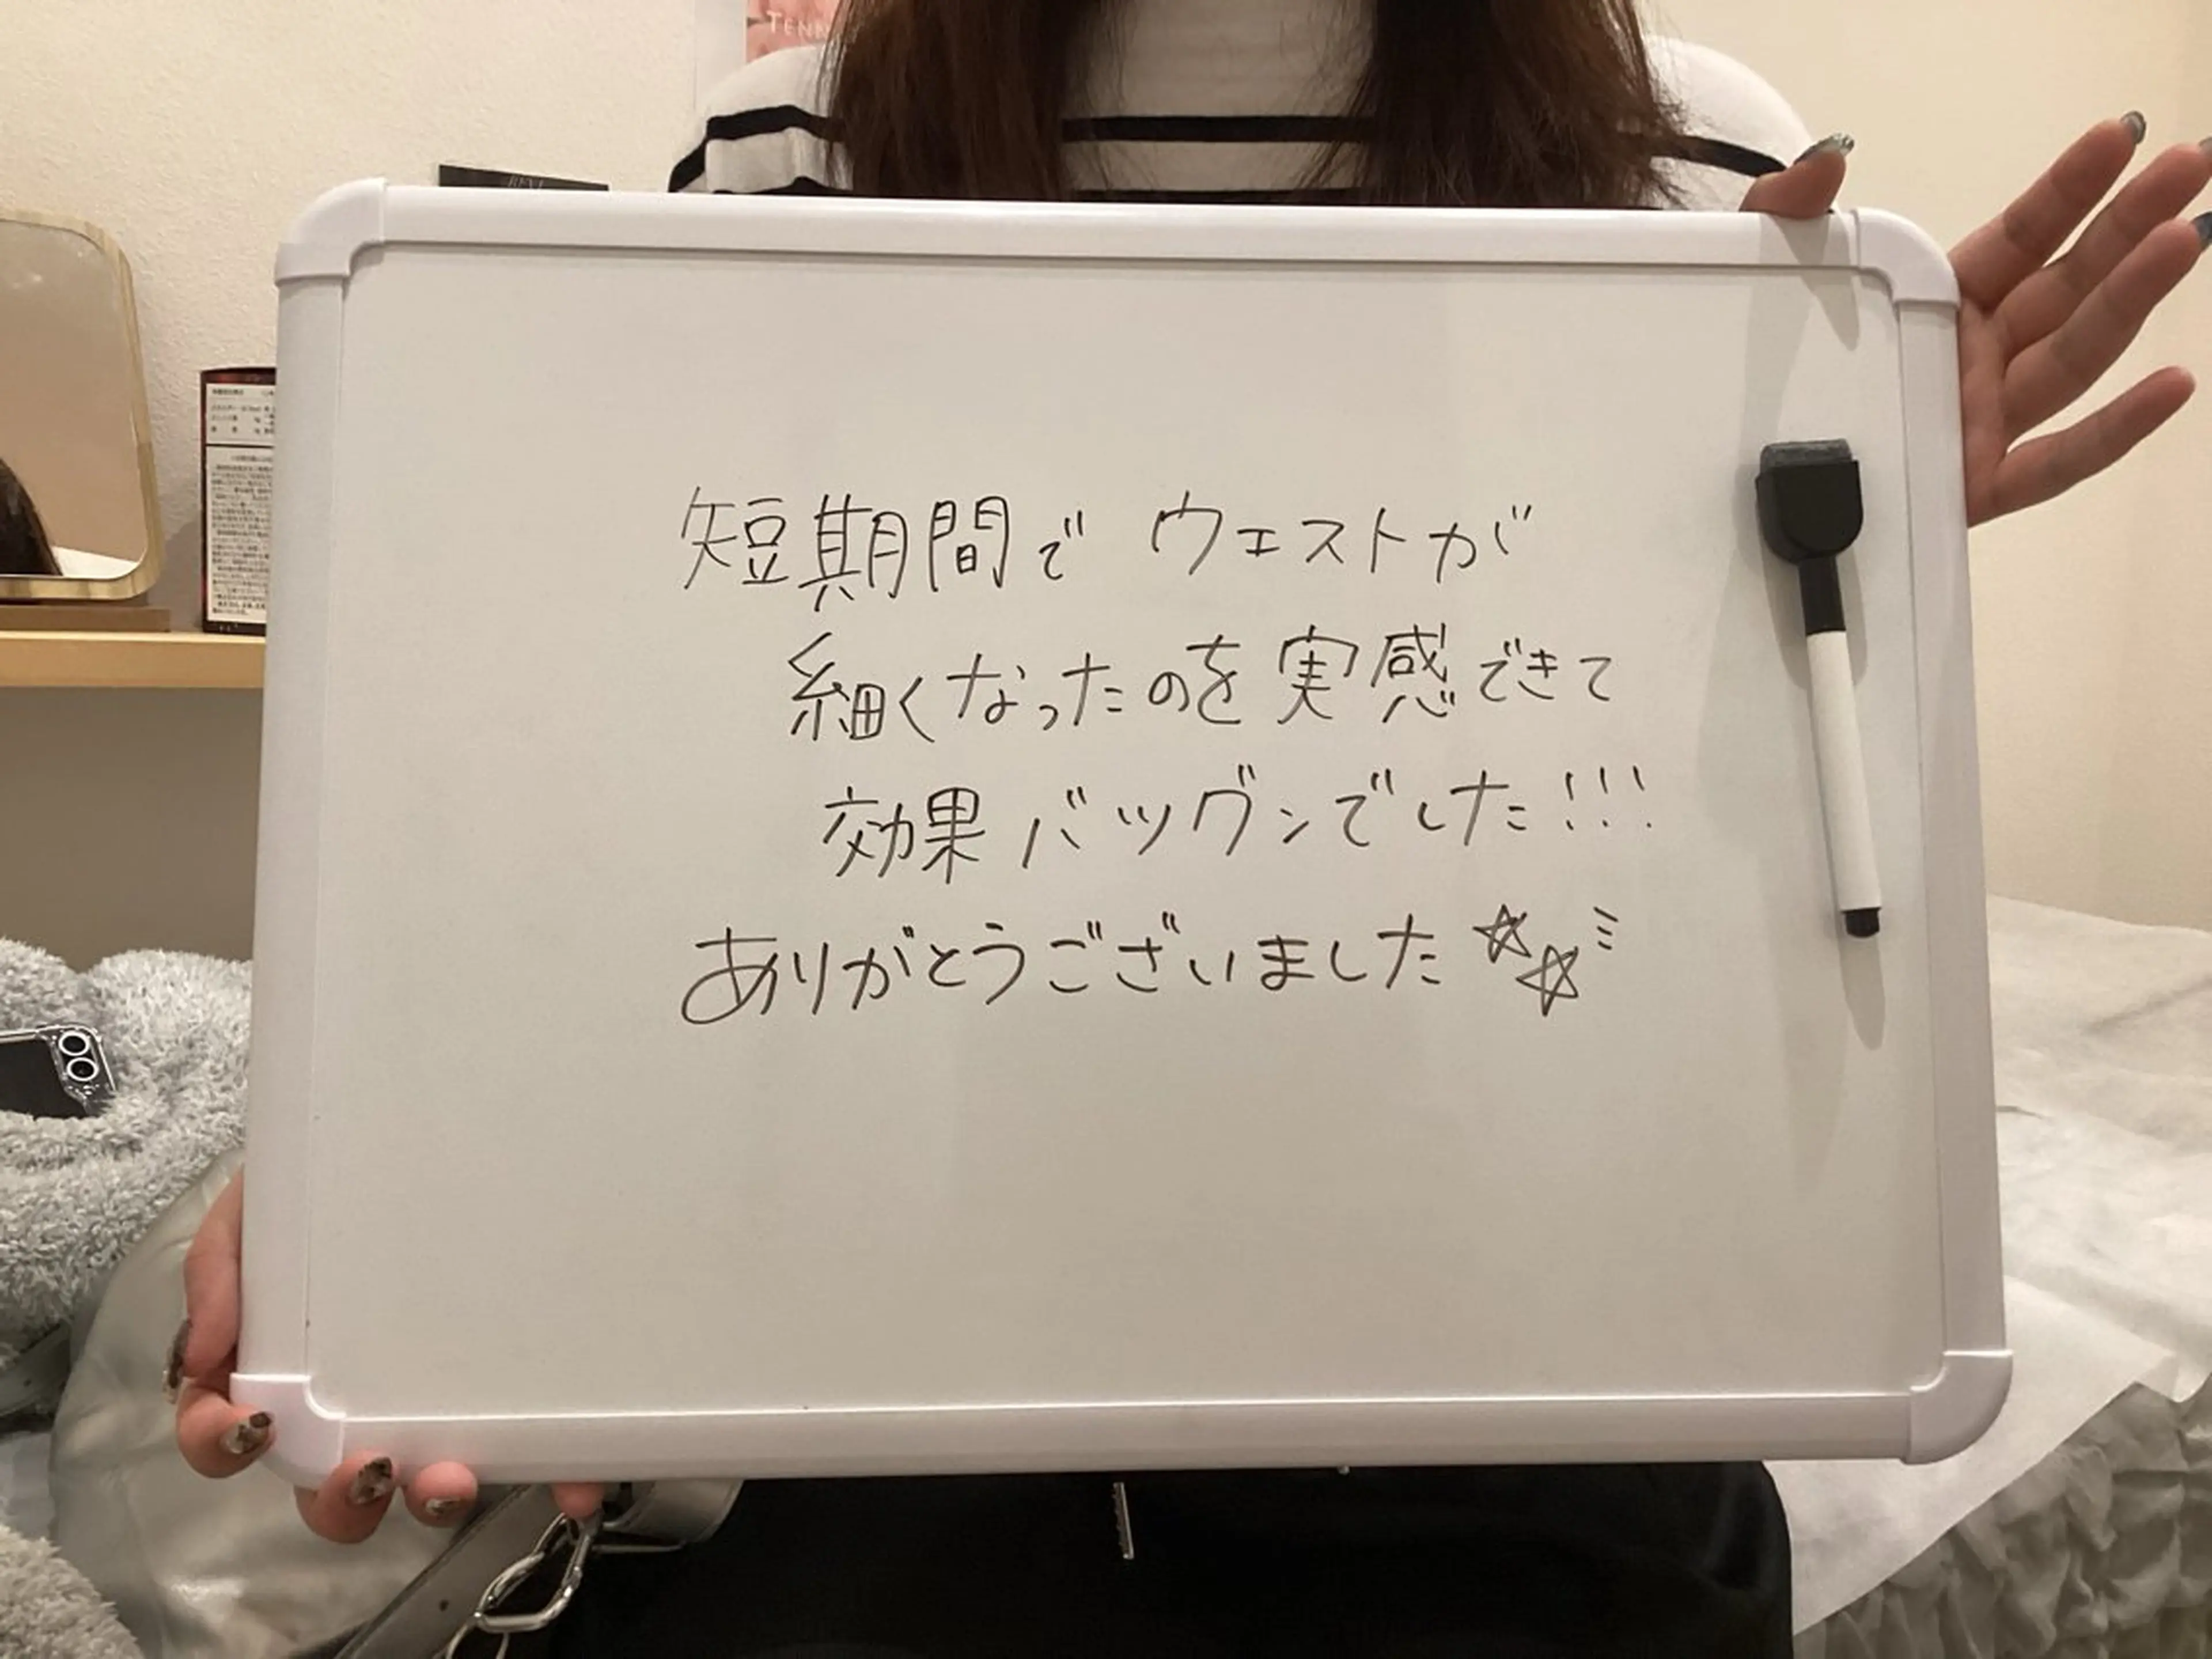 TENN
短期間で ウエストが
細くなったのを実感できて
効果バツグンでした!!!
ありがとうございました☆☆